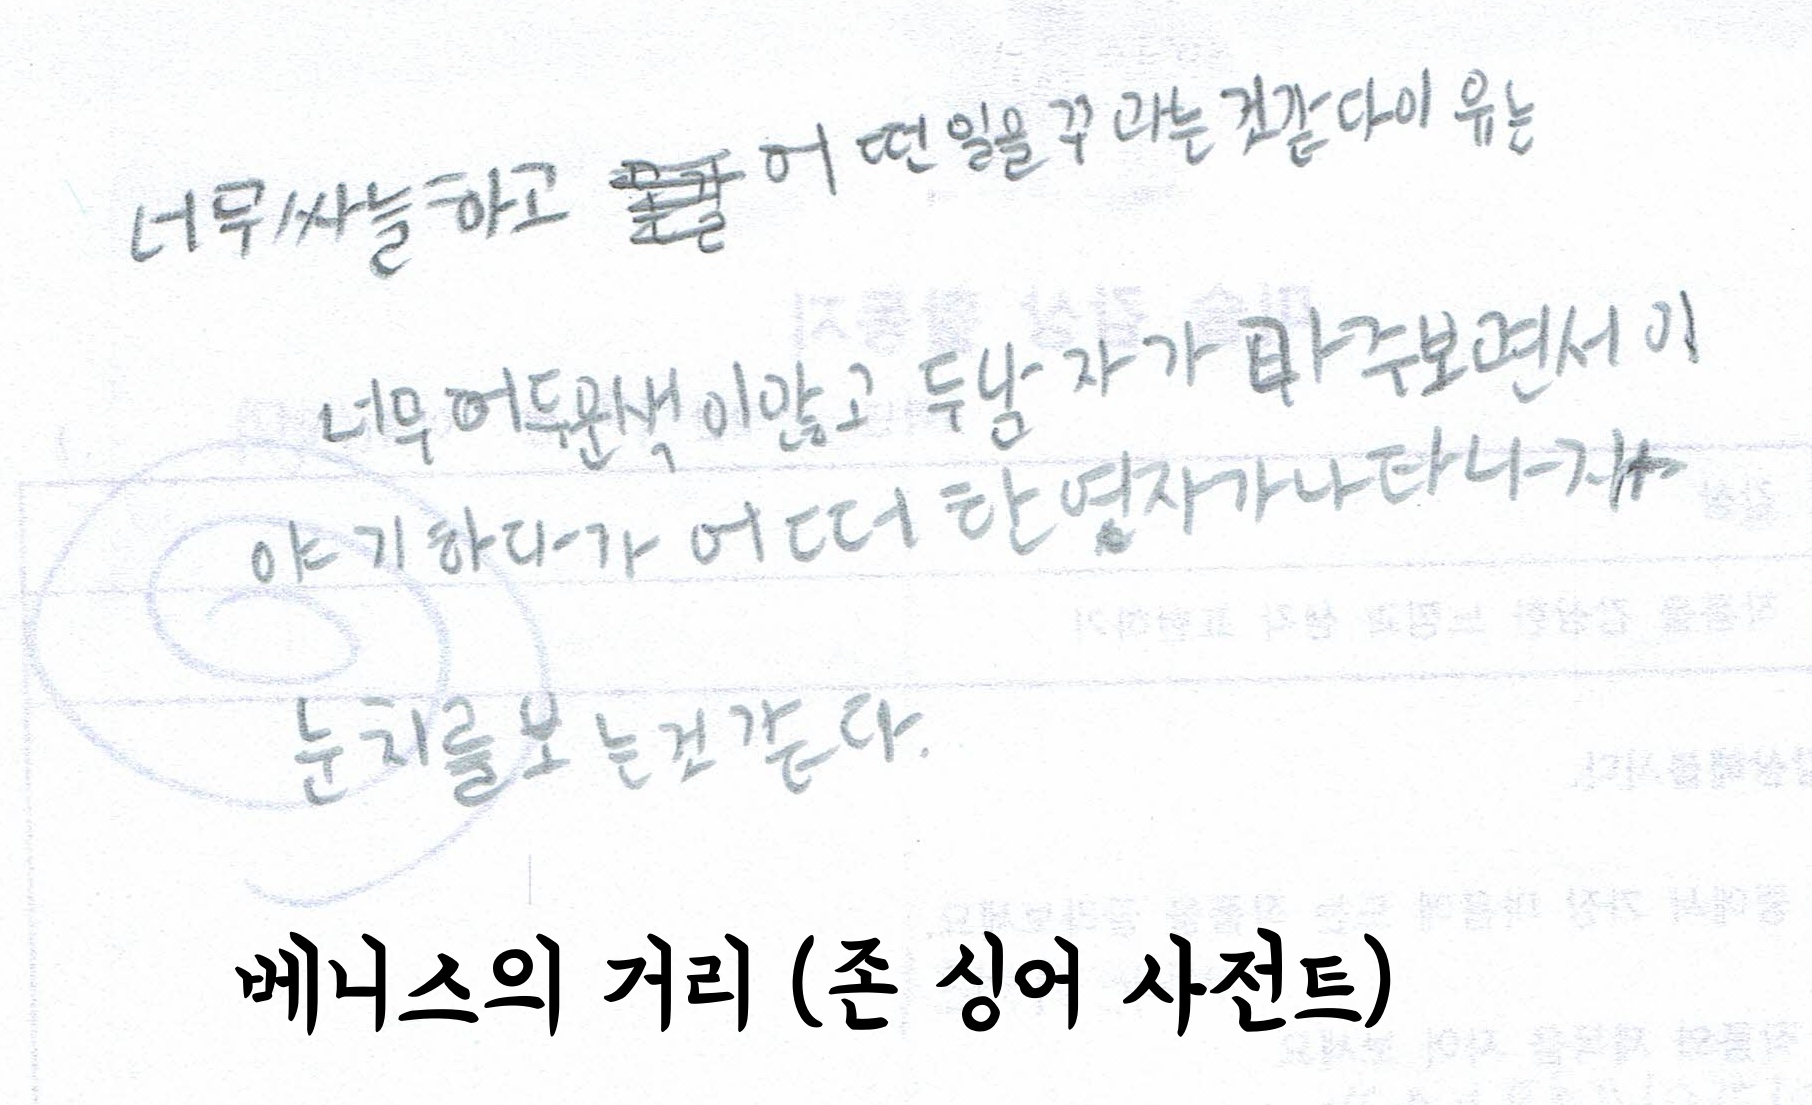 너무 싸늘하고 어떤 일을 꾸 과는 것같다 이유는
너무 어두운색이많고 두남자가 마주보면서 이
야기하다가 어떠한 여자가 나타나자
눈치를 보는것 같은다.
베니스의 거리 (존 싱어 사전트)